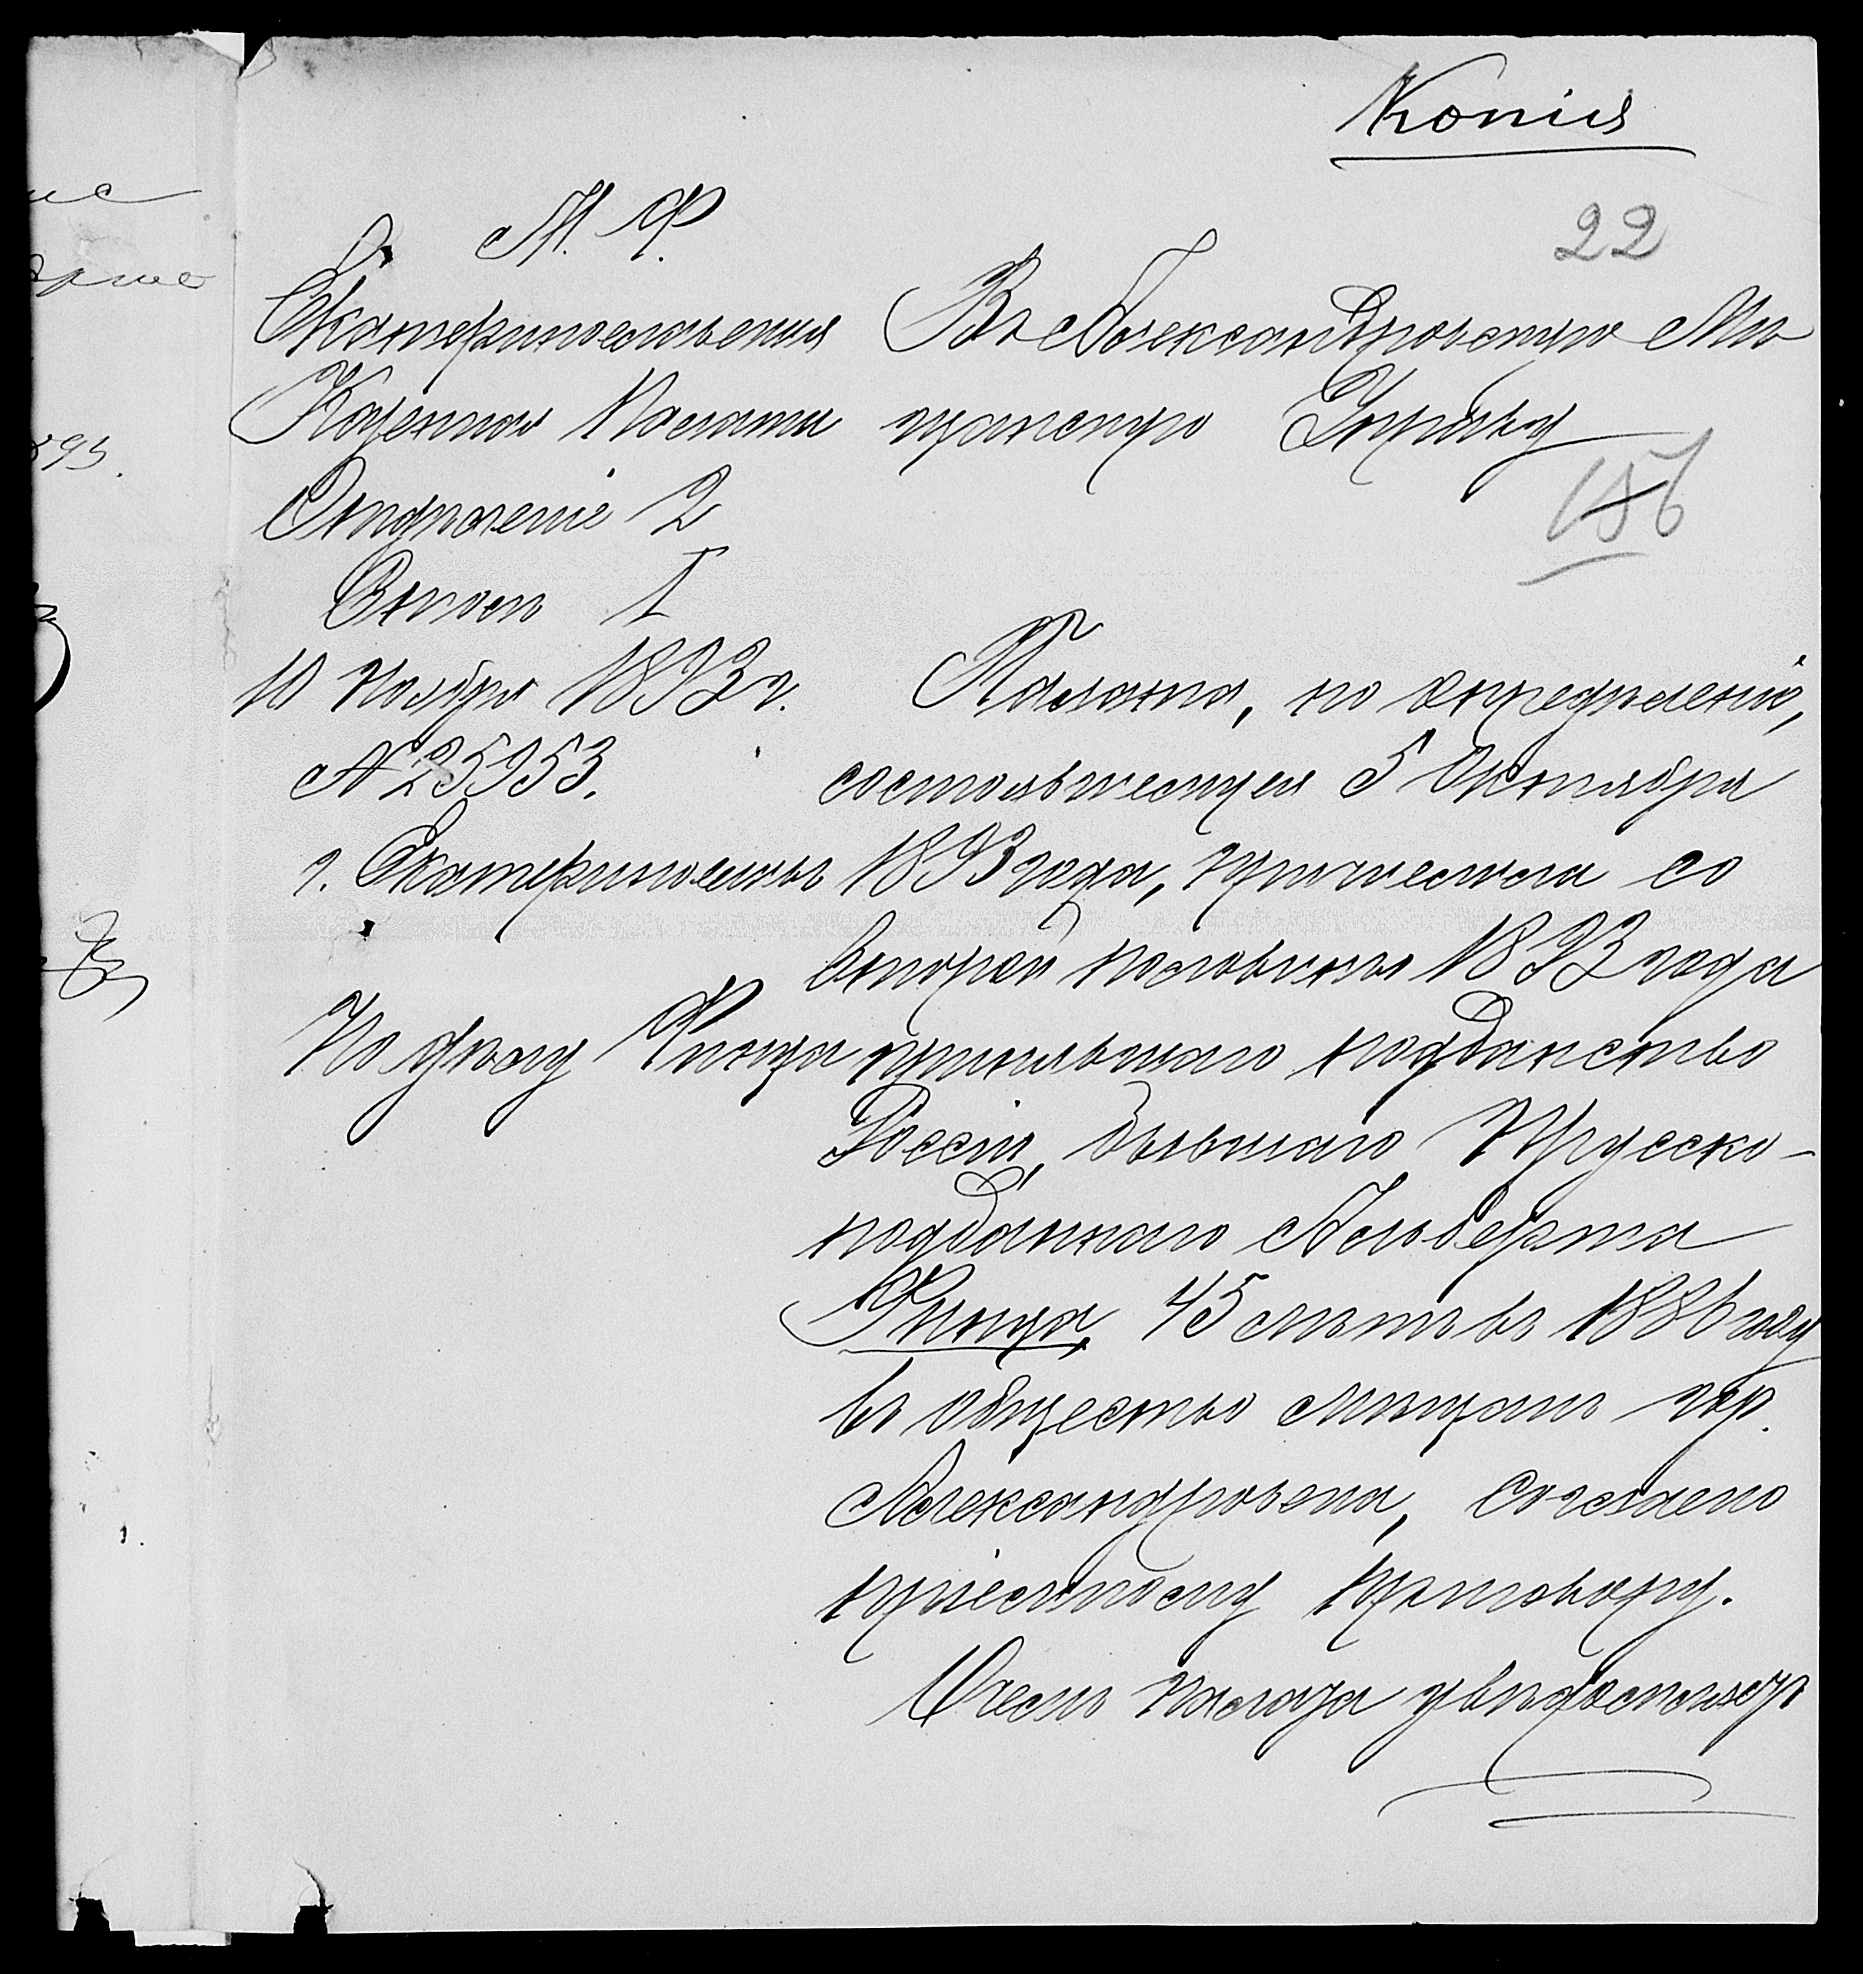 Копія
22
М. Ф.
Екатеринославская
Казенная Палата
Отдѣленіе 2
Столъ 1
10 Ноября 1893 г.
№ 25953.
г. Екатеринославъ
По дѣлу Финца
Въ Александровскую Мѣ
щанскую Управу
156
Палата, по опредѣленію,
состоявшемуся 5 Октября
1893 года, причислила со
второй половины 1893 года
принявшаго подданство
Россіи, бывшаго Прусско-
подданнаго Альберта
Финца, 45 лѣтъ въ 1886 году
въ общество мѣщанъ гор.
Александровска, согласно
пріемному приговору.
О чемъ Палата увѣдомляетъ